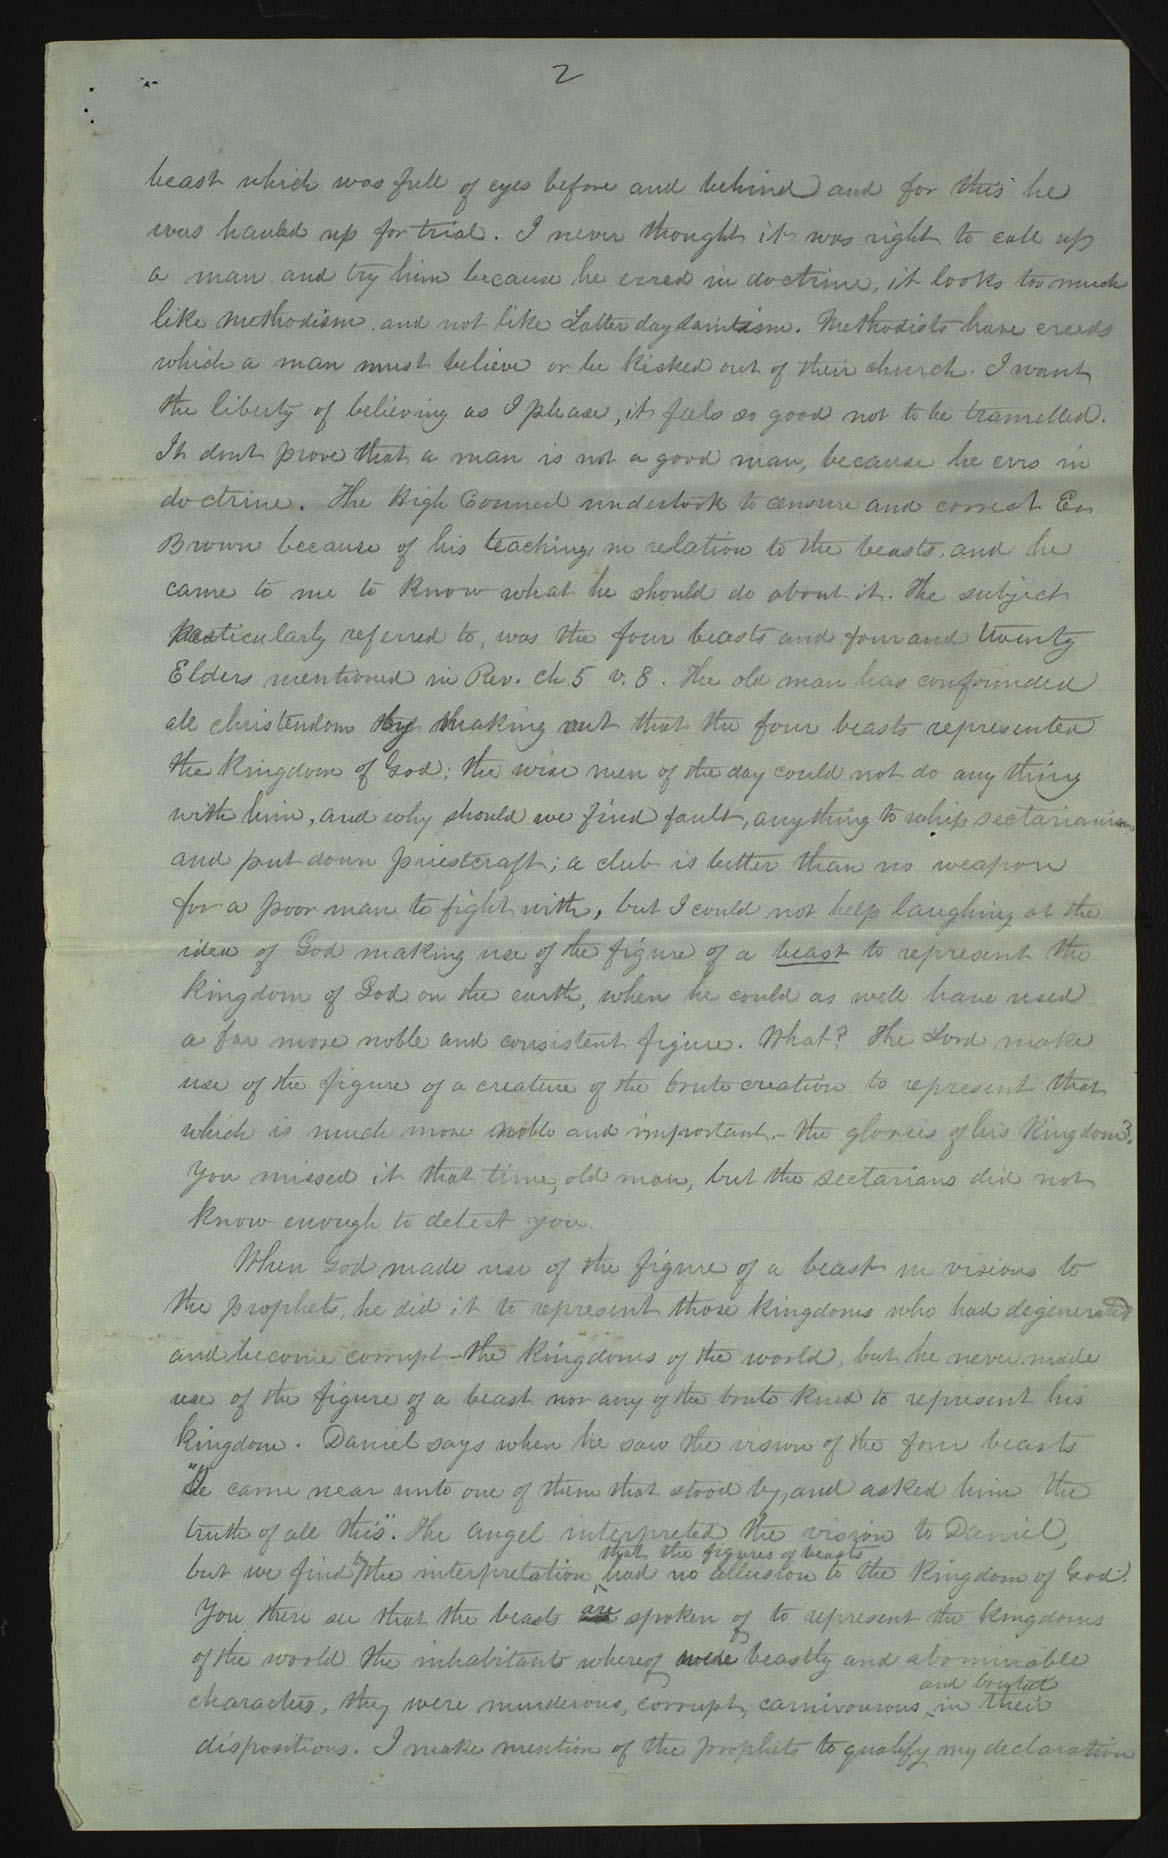 2
beast which was full of eyes before and behind) and for this he
was hauled up for trial. I never thought it was right to call up
a man and try him because he erred in doctrine, it looks too much
like methodism and not like Latter day Saintism. Methodists have creeds
which a man must believe or be kicked out of their church. I want
the liberty of believing as I please, it feels so good not to be tramelled.
It dont prove that a man is not a good man, because he errs in
doctrine. The High Council undertook to censure and correct Er
Brown because of his teaching in relation to the beasts, and he
came to me to know what he should do about it. The subject
particularly referred to, was the four beasts and four and twenty
Elders mentioned in Rev. ch 5 v. 8. The old man has confounded
all christendom by making out that the four beasts represented
the kingdom of God; the wise men of the day could not do any thing
with him, and why should we find fault, anything to whip sectarianism
and put down priestcraft; a club is better than no weapon
for a poor man to fight with, but I could not help laughing at the
idea of God making use of the figure of a beast to represent the
kingdom of God on the earth, when he could as well have used
a far more noble and consistent figure. What? The Lord make
use of the figure of a creature of the brute creation to represent that
which is much more noble and important - the glories of his kingdom?
You missed it that time, old man, but the sectarians did not
know enough to detect you.
When God made use of the figure of a beast in visions to
the prophets, he did it to represent those kingdoms who had degenerated
and become corrupt - the kingdoms of the world, but he never made
use of the figure of a beast nor any of the brute kind to represent his
kingdom. Daniel says when he saw the vision of the four beasts
"He came near unto one of them that stood by, and asked him the
truth of all this". The angel interpreted the vision to Daniel,
that the figures of beasts
but we find by the interpretation had no allusion to the kingdom of God.
You there see that the beasts are spoken of to represent the kingdoms
of the world the inhabitants whereof were beastly and abominable
and brutal
characters, they were murderous, corrupt, carnivourous in their
dispositions. I make mention of the prophets to qualify my declaration